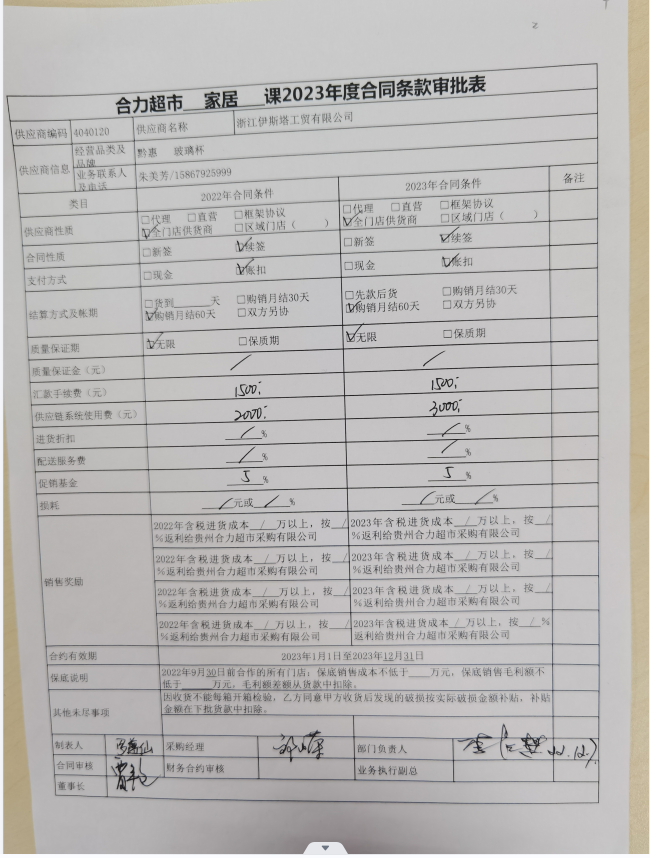 合力超市 家居 课2023年度合同条款审批表
供应商编码 4040120 供应商名称 浙江伊斯塔工贸有限公司
供应商信息 经营品类及品牌 黔惠 玻璃杯
业务联系人及电话 朱美芳/15867925999
类目 2022年合同条件 2023年合同条件 备注
供应商性质 □代理 □直营 □框架协议 ☑全门店供货商 □区域门店（ ） □代理 □直营 □框架协议 ☑全门店供货商 □区域门店（ ）
合同性质 □新签 ☑续签 □新签 ☑续签
支付方式 □现金 ☑账扣 □现金 ☑账扣
结算方式及帐期 □货到____天 □购销月结30天 ☑购销月结60天 □双方另协 □先款后货 □购销月结30天 ☑购销月结60天 □双方另协
质量保证期 ☑无限 □保质期 ☑无限 □保质期
质量保证金（元） / /
汇款手续费（元） 1500 1500
供应链系统使用费（元） 2000 3000
进货折扣 / % / %
配送服务费 / % / %
促销基金 5 % 5 %
损耗 / 元或 / % / 元或 / %
销售奖励
2022年含税进货成本 / 万以上，按 / 2023年含税进货成本 / 万以上，按 /
%返利给贵州合力超市采购有限公司 %返利给贵州合力超市采购有限公司
2022年含税进货成本 / 万以上，按 / 2023年含税进货成本 / 万以上，按 /
%返利给贵州合力超市采购有限公司 %返利给贵州合力超市采购有限公司
2022年含税进货成本 / 万以上，按 / 2023年含税进货成本 / 万以上，按 /
%返利给贵州合力超市采购有限公司 %返利给贵州合力超市采购有限公司
2022年含税进货成本 / 万以上，按 / 2023年含税进货成本 / 万以上，按 / %
%返利给贵州合力超市采购有限公司 返利给贵州合力超市采购有限公司
合约有效期 2023年1月1日至2023年12月31日
保底说明 2022年9月30日前合作的所有门店，保底销售成本不低于____万元，保底销售毛利额不
低于____万元，毛利额差额从货款中扣除。
其他未尽事项 因收货不能每箱开箱检验，乙方同意甲方收货后发现的破损按实际破损金额补贴，补贴
金额在下批货款中扣除。
制表人 采购经理 部门负责人
合同审核 财务合约审核 业务执行副总
董事长